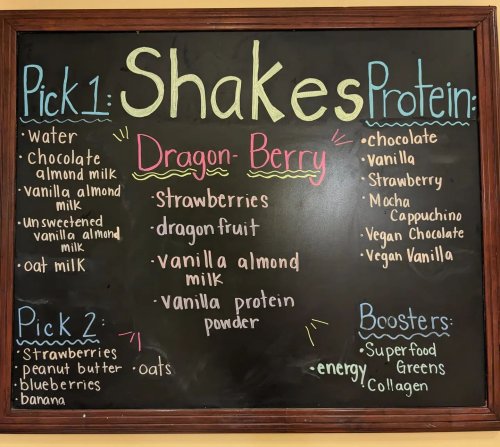 Shakes
Pick 1:
• Water
• Chocolate
almond milk
• vanilla almond
milk
• unsweetened
vanilla almond
milk
• oat milk
Pick 2:
• Strawberries
• peanut butter
• blueberries
• banana
• oats
Dragon-Berry
• Strawberries
• dragon fruit
• vanilla almond
milk
• vanilla protein
powder
Protein:
• chocolate
• vanilla
• Strawberry
• Mocha
Cappuchino
• Vegan Chocolate
• Vegan Vanilla
Boosters:
• Superfood
Greens
• energy
• Collagen